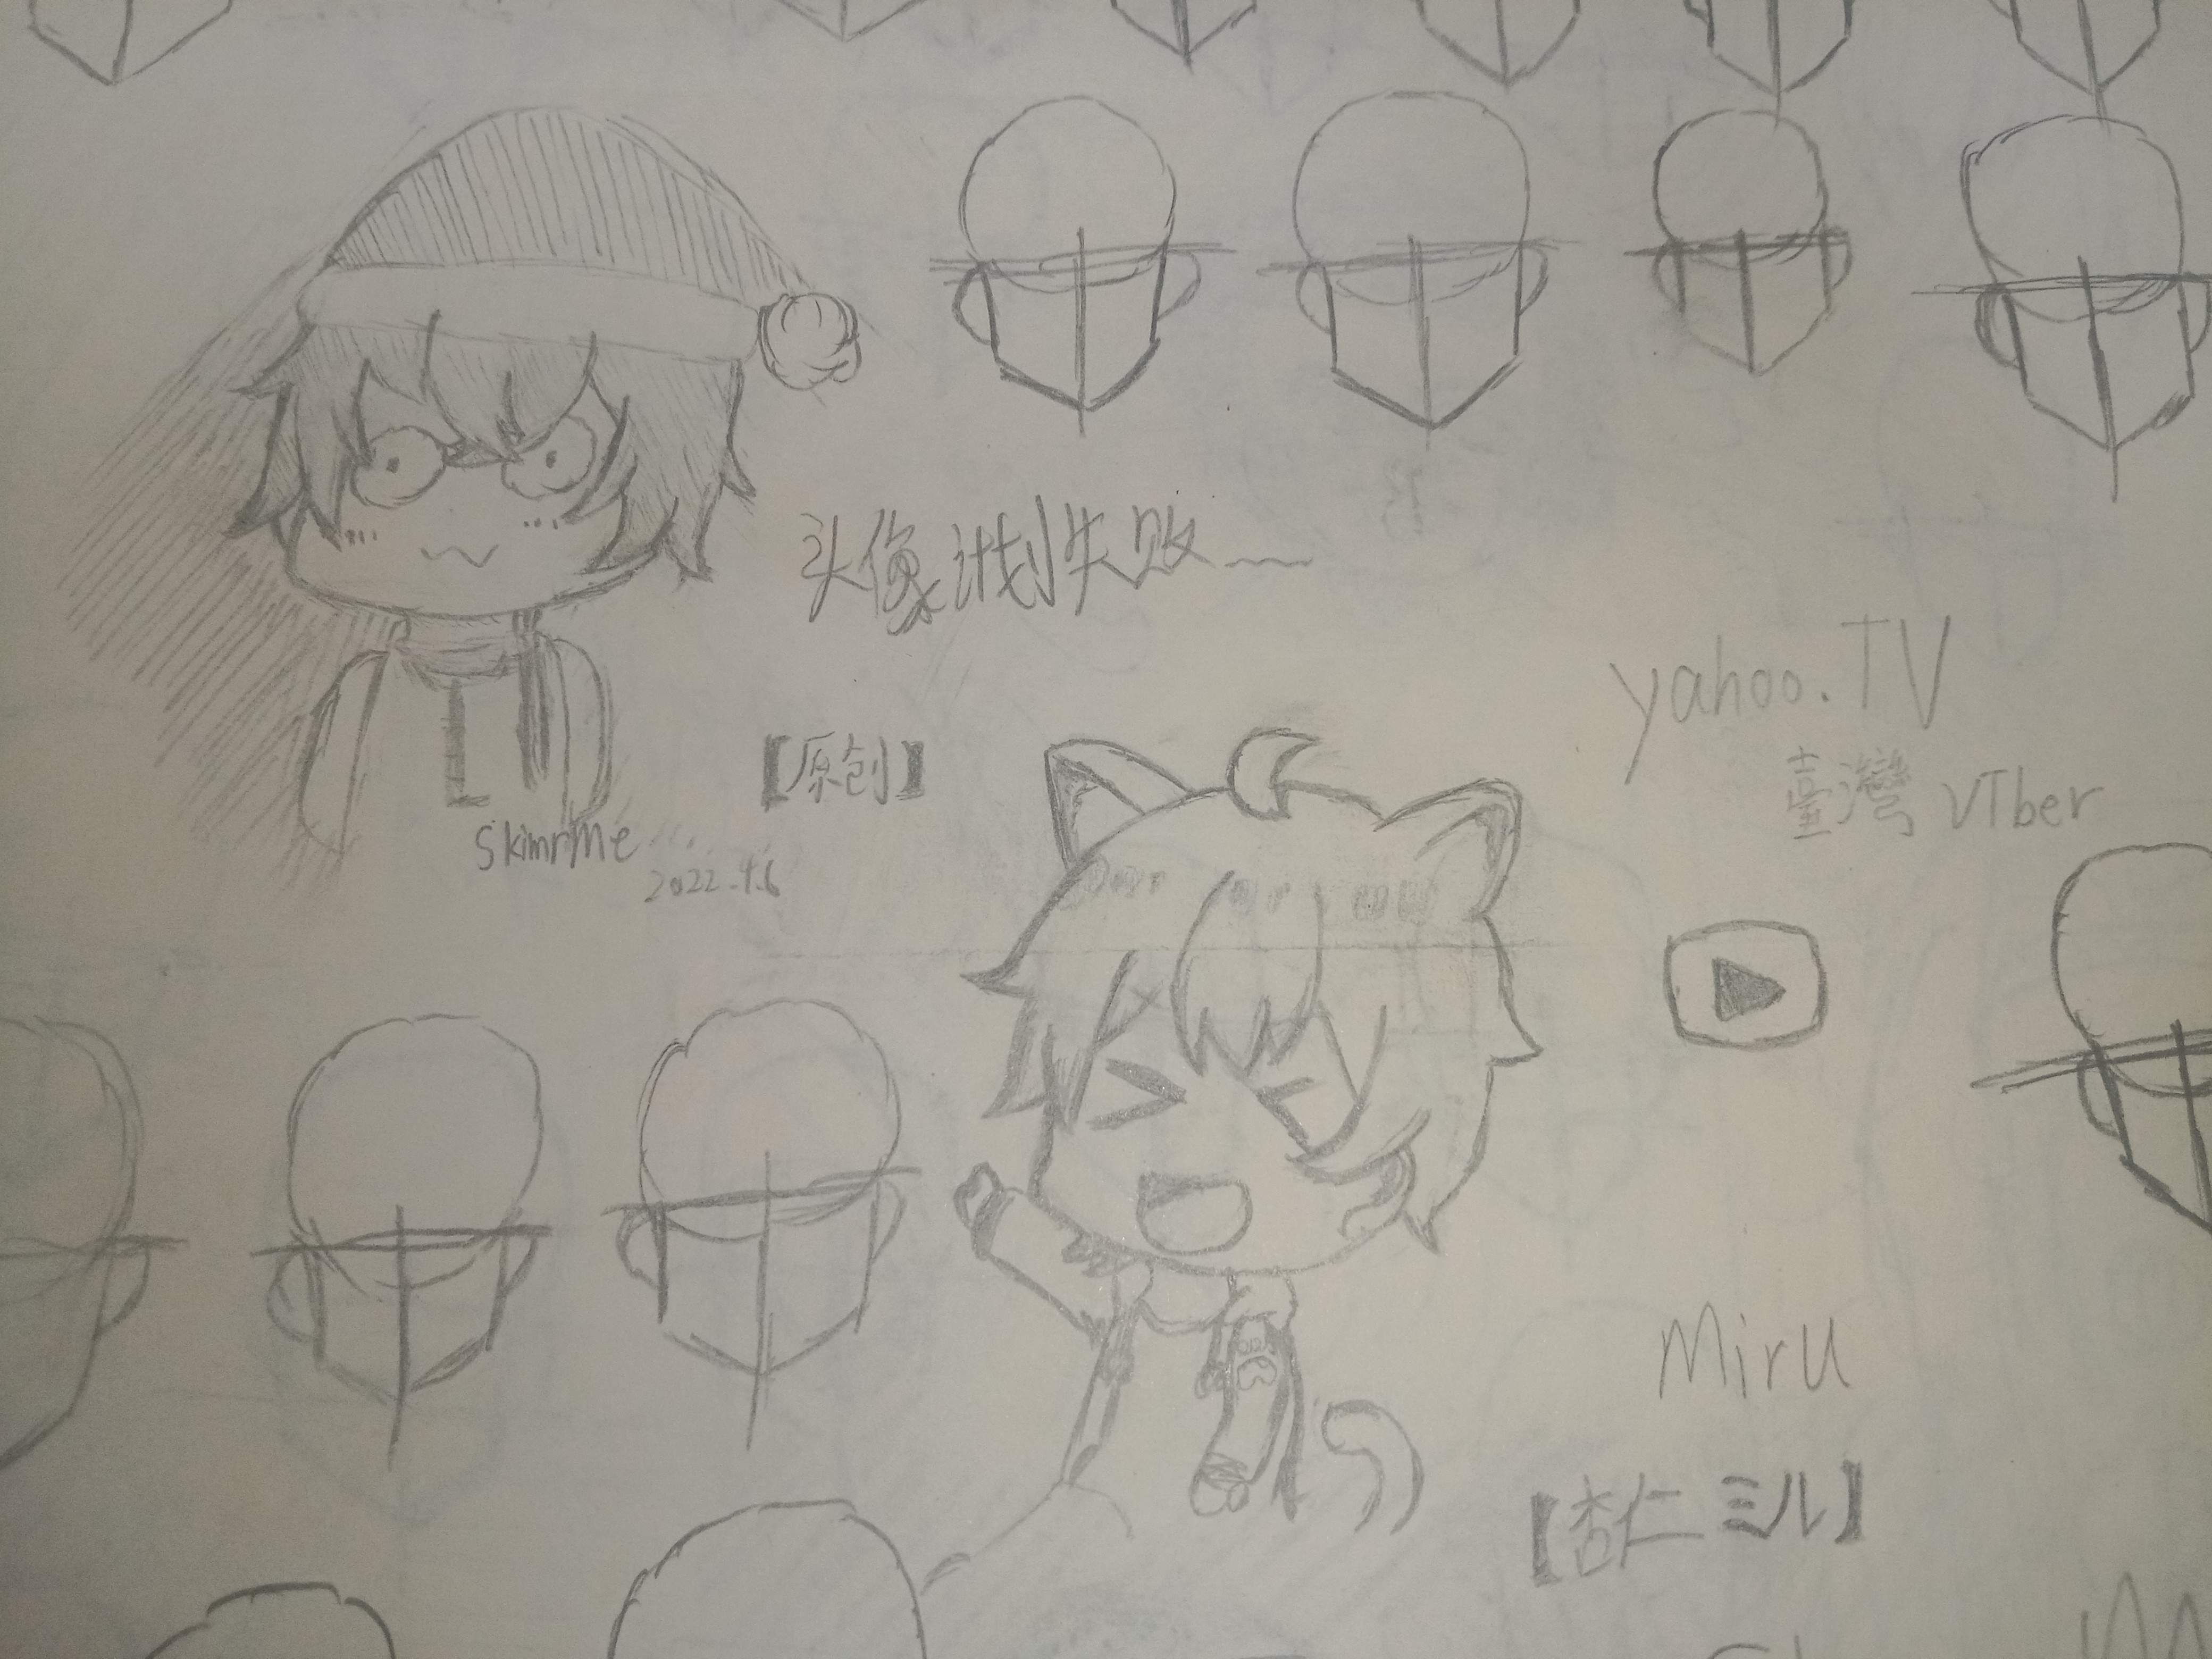 头像计划失败~~
【原创】
SkimrMe
2022.4.6
yahoo.TV
臺灣 VTber
Miru
【杏仁ミル】